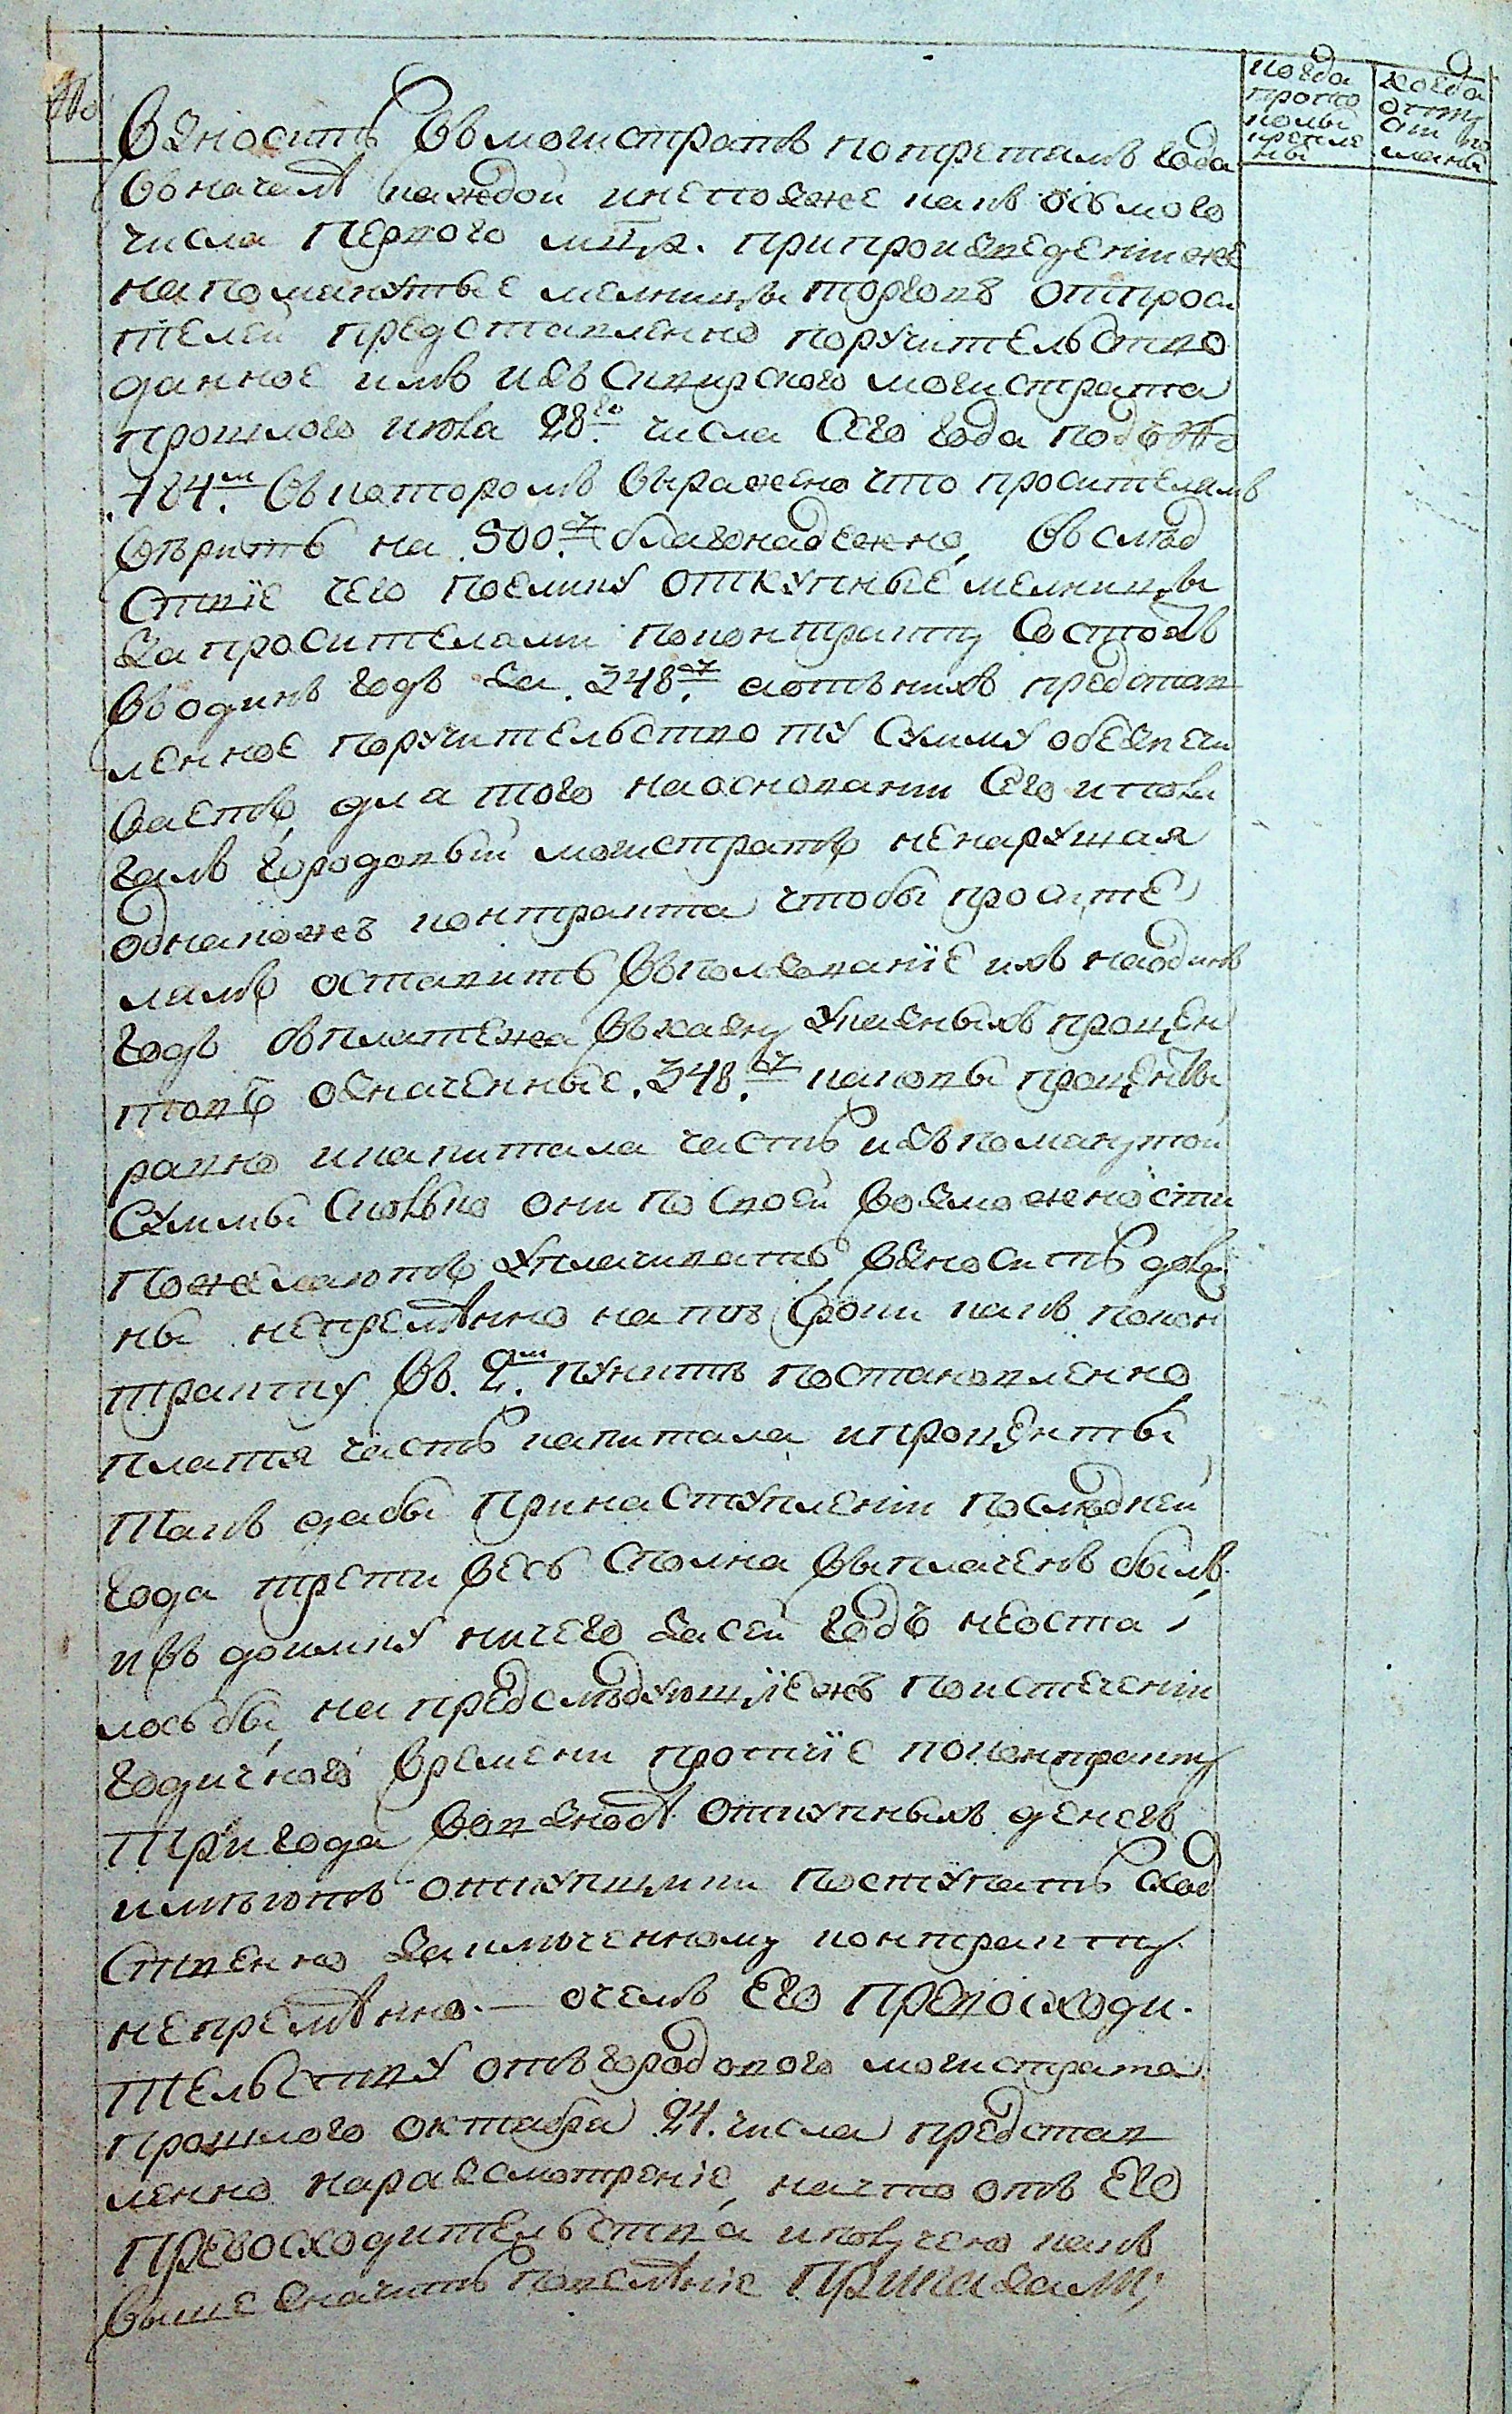 №
когда
прото
колы
крепле
ны
когда
отпу
сти
но
сланы
Вэносить въ могистратъ потретямъ года
въ началѣ каждой инепозже какъ осьмого
числа первого мца. припроизведеніи же
напомянутые мелницы торговъ отпроси
телей представленно поручительство
данное имъ изъ Симбирского могистрата
прошлого июля 28го числа сего года под №
184м въ котором выражено что просителямъ
вѣрить на 500 р благонадежно, въ слѣд
ствіе чего поелику откупные мелницы
запросителями поконтракту состоятъ
въ одинъ годъ за 348 р. а отъ нихъ представ
ленное поручительство ту сумму обезпечи
ваетъ, для того на основании сего и пола
галъ городовый могистратъ ненарушая
однакожъ контракта чтобы просите
лямъ оставить въ ползованіе ихъ на одинъ
годъ въ платежа въ казну указныхъ процен
товъ означенные 348 р каковы проценты
равно икапитала часть изъ помянутой
суммы сколько они по своей возможности
пожелаютъ уплачивать, взносить долж
ны непремѣнно на тѣ сроки какъ покон
тракту въ 2м пунктѣ постановленно,
платя часть капитала ипроценты
такъ дабы принаступлении послѣдней
года трети весь сполна выплаченъ былъ
и въ доимку ничего засей годъ неоста
лось бы, на предслѣдующіежъ поистечении
годичного времени протчіе поконтракту
три года во взносѣ откупныхъ денегъ
имѣютъ откупщики поступать сход
ственно заключенному контракту
непремѣнно. — очемъ Его Превосходи
тельству отъ городового могистрата
прошлого октября 24. числа представ
ленно наразсмотреніе, начто отъ Его
Превосходительства иполучено какъ
выше значитъ повелѣніе Приказали,